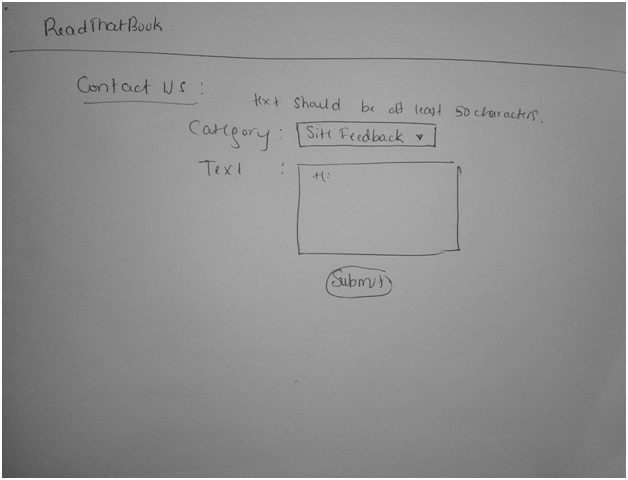 ReadThatBook
Contact Us :
text should be at least 50 characters.
Category : Site Feedback ▾
Text : Hi
Submit